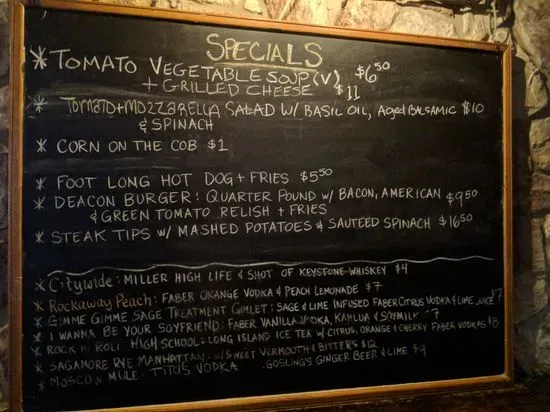 SPECIALS
* TOMATO VEGETABLE SOUP (V) $6.50
+ GRILLED CHEESE $11
* TOMATO + MOZZARELLA SALAD W/ BASIL OIL, AGED BALSAMIC $10
& SPINACH
* CORN ON THE COB $1
* FOOT LONG HOT DOG + FRIES $5.50
* DEACON BURGER: QUARTER POUND W/ BACON, AMERICAN $9.50
& GREEN TOMATO RELISH + FRIES
* STEAK TIPS W/ MASHED POTATOES & SAUTEED SPINACH $16.50
* Citywide: MILLER HIGH LIFE & SHOT OF KEYSTONE WHISKEY $4
* Rockaway Peach: FABER ORANGE VODKA & PEACH LEMONADE $7
* GIMME GIMME SAGE TREATMENT GIMLET: SAGE & LIME INFUSED FABER CITRUS VODKA & LIME JUICE $7
* I WANNA BE YOUR SOYFRIEND: FABER VANILLA VODKA, KAHLUA & SOYMILK $7
* ROCK N ROLL HIGH SCHOOL: LONG ISLAND ICE TEA W/ CITRUS, ORANGE & CHERRY FABER VODKAS $8
* SAGAMORE RYE MANHATTAN: W/ SWEET VERMOUTH & BITTERS $12
* MOSCOW MULE: TITOS VODKA GOSLING'S GINGER BEER & LIME $9